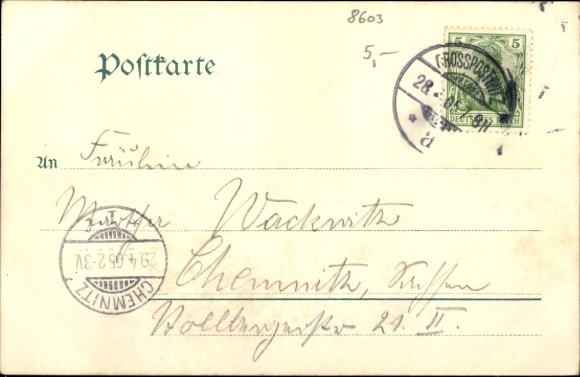 8603
5,-
Postkarte
5 5
DEUTSCHES REICH
GROSSPOSTWITZ
28. 05. 7-8N
* a
An Fräulein
Martha Wackwitz
Chemnitz, Sachsen
21. II.
CHEMNITZ 1
29.4.05.2-3V.